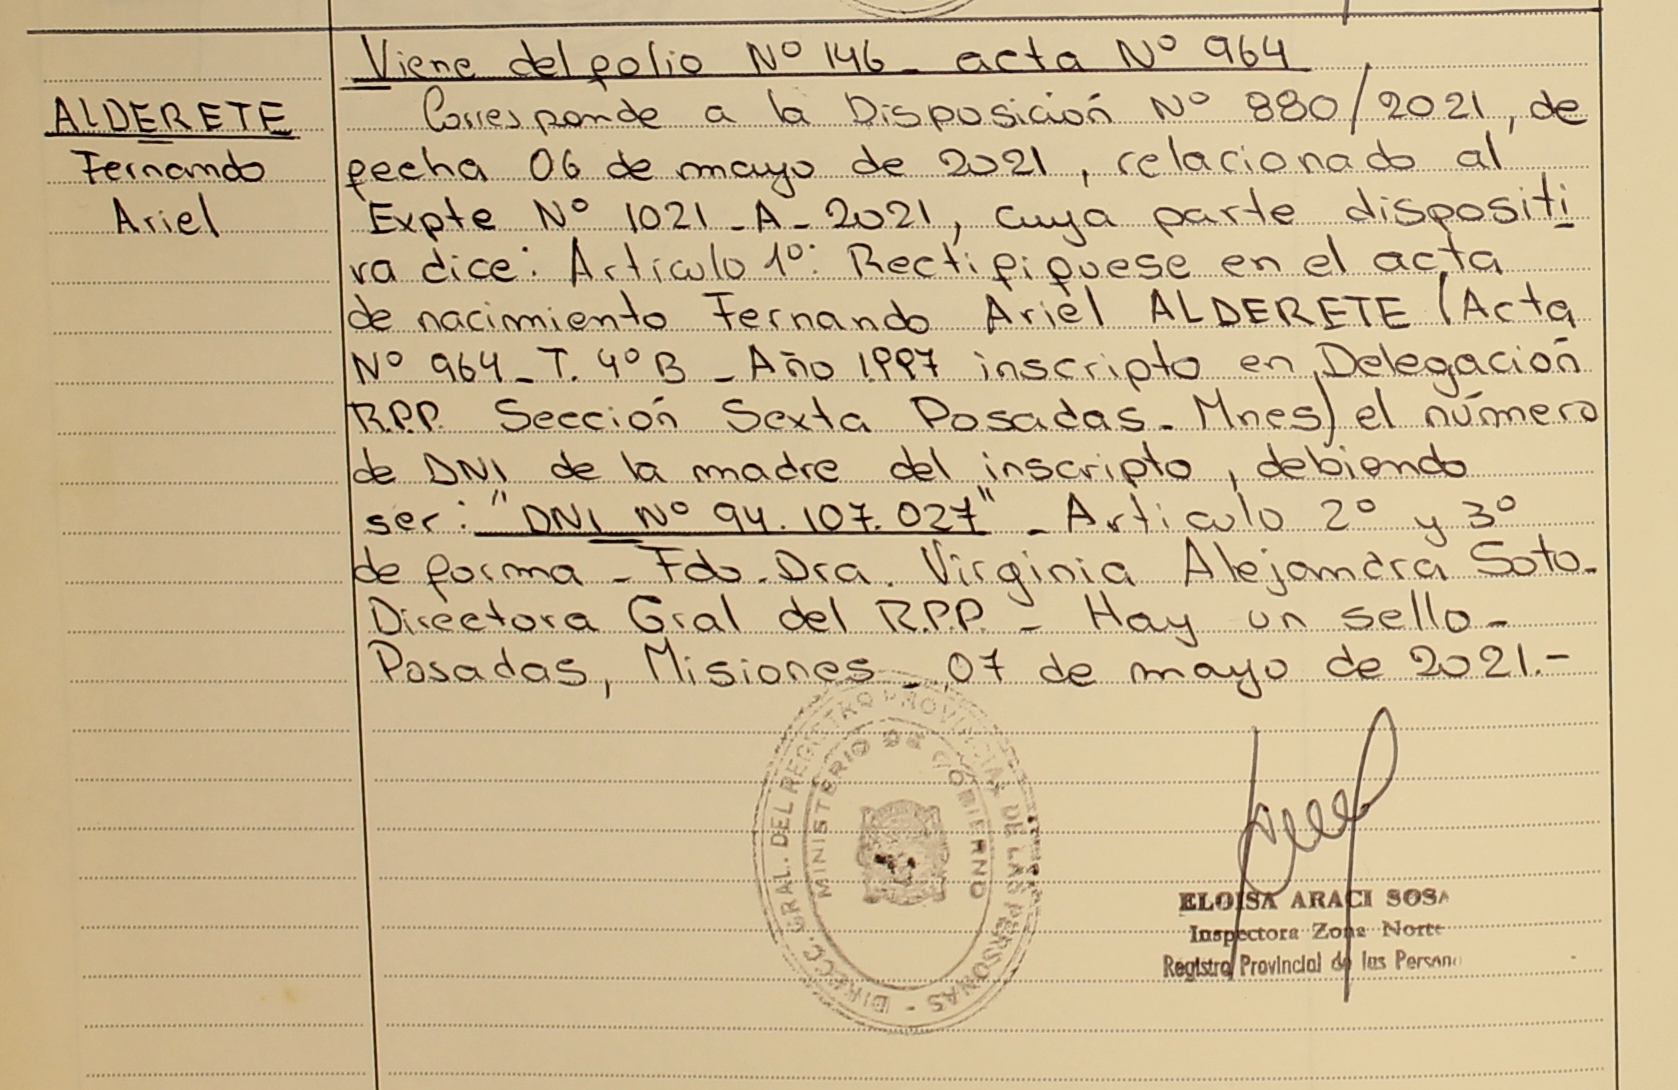 Viene del folio Nº 146 - acta Nº 964
ALDERETE
Fernando
Ariel
Corresponde a la Disposición Nº 880/2021, de
fecha 06 de mayo de 2021, relacionado al
Expte Nº 1021 - A - 2021, cuya parte dispositi
va dice: Artículo 1º: Rectifíquese en el acta
de nacimiento Fernando Ariel ALDERETE (Acta
Nº 964 - T. 4º B - Año 1997 inscripto en Delegación
R.P.P. Sección Sexta Posadas - Mnes) el número
de DNI de la madre del inscripto, debiendo
ser: "DNI Nº 94.107.027" - Artículo 2º y 3º
de forma - Fdo. Dra. Virginia Alejandra Soto -
Directora Gral del R.P.P. - Hay un sello -
Posadas, Misiones - 07 de mayo de 2021.-
DIRECC. GRAL. DEL REGISTRO PROVINCIAL DE LAS PERSONAS -
MINISTERIO DE GOBIERNO
ELOISA ARACI SOSA
Inspectora Zona Norte
Registro Provincial de las Person